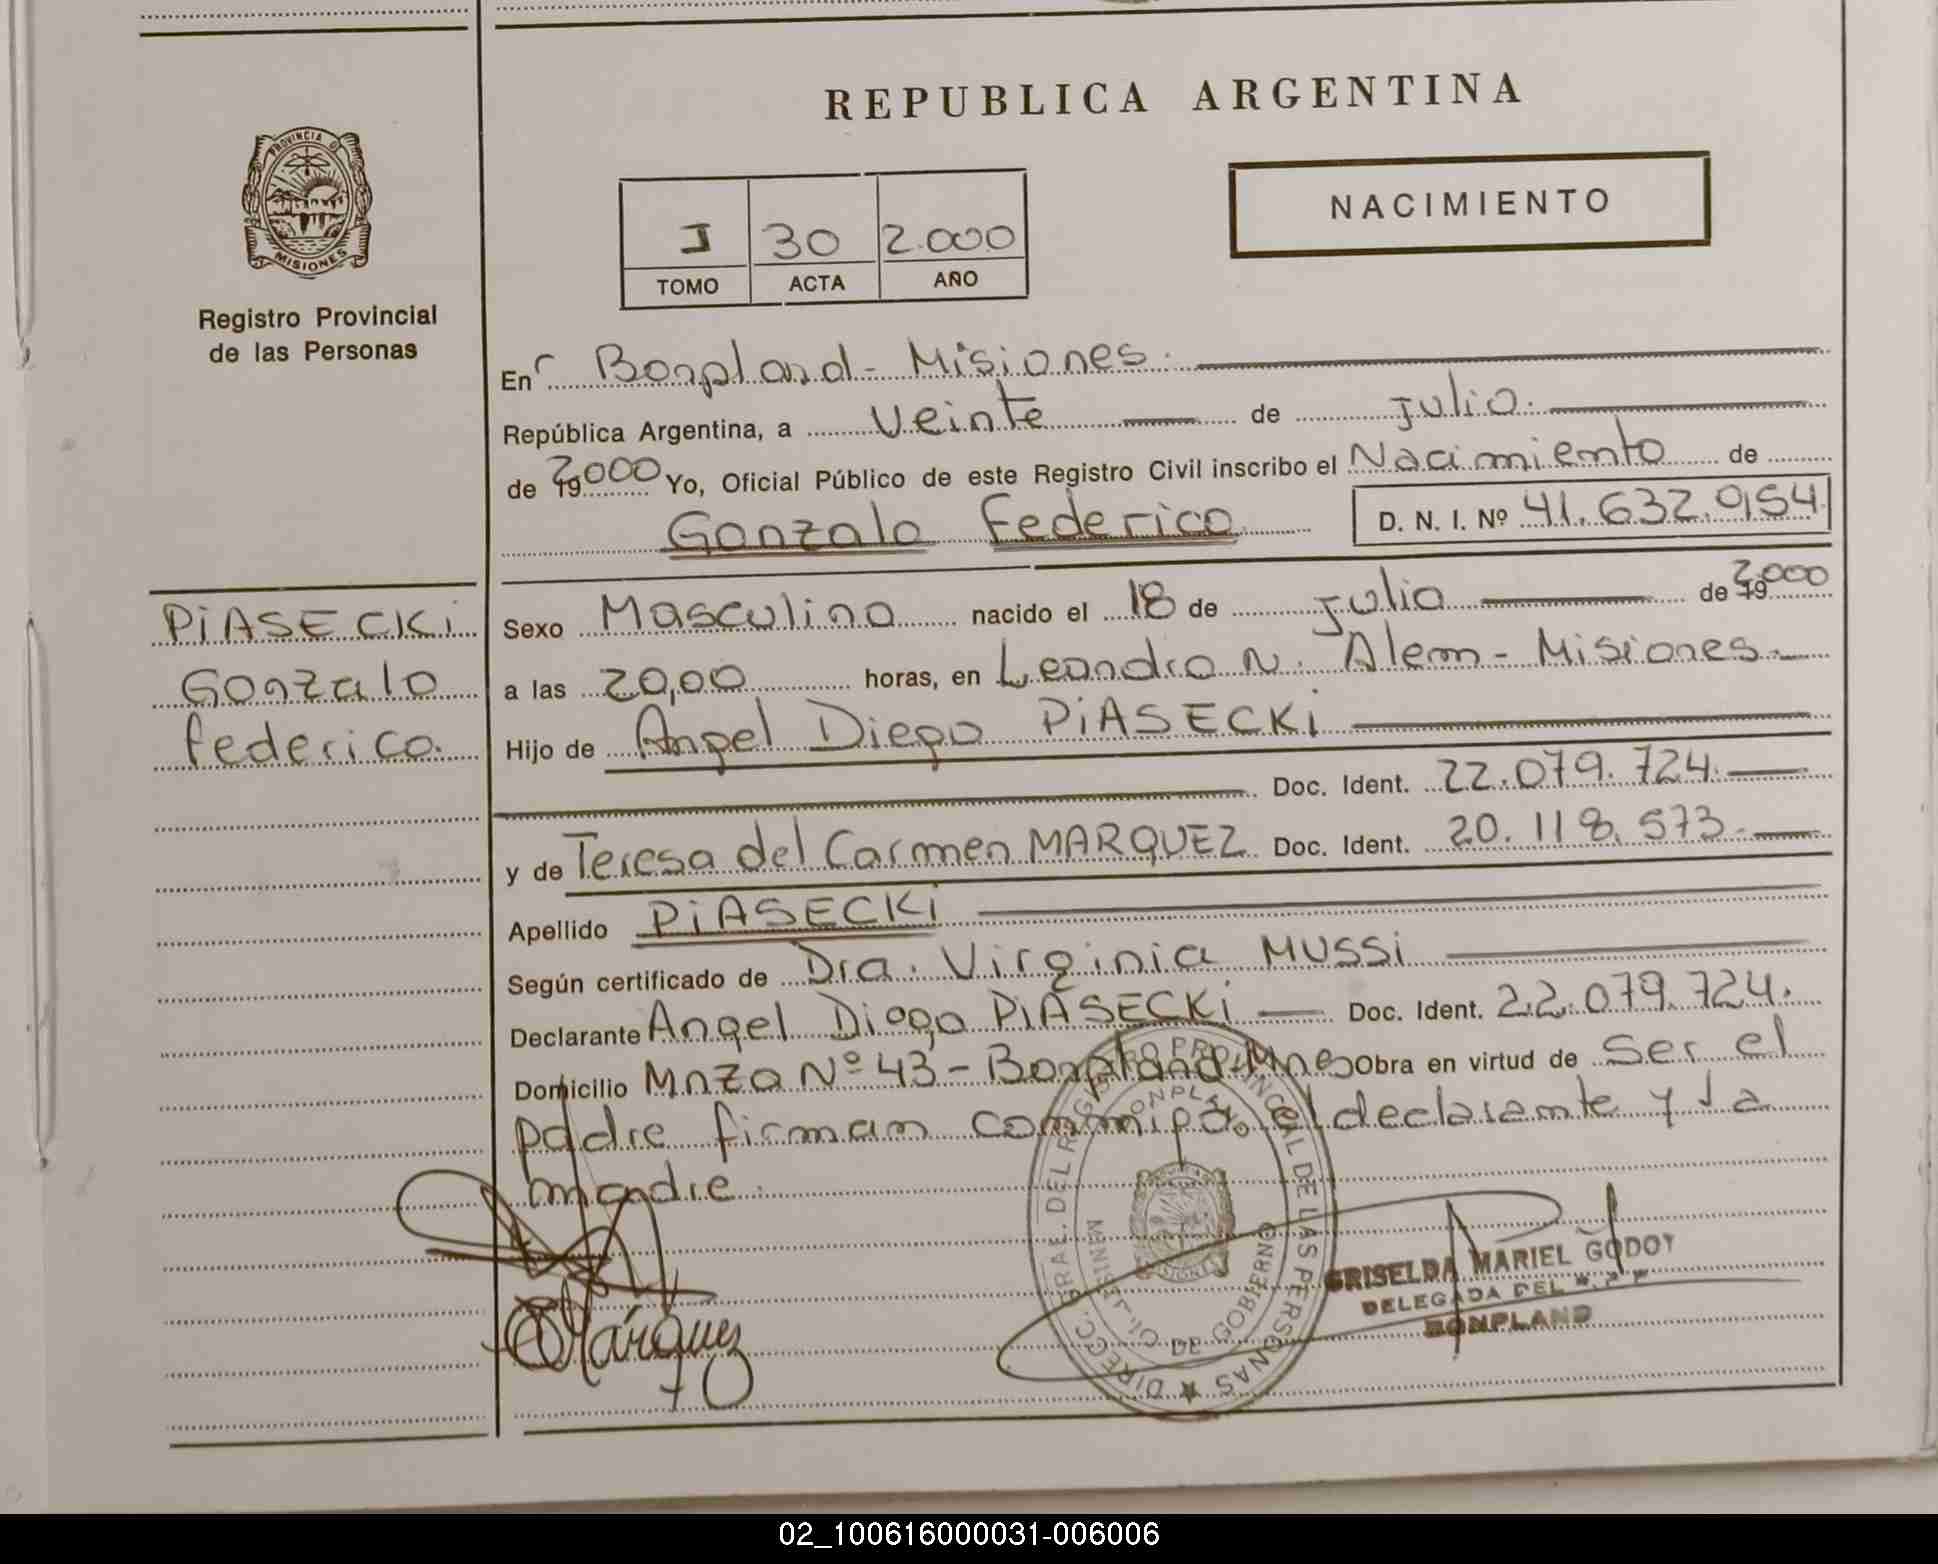 REPUBLICA ARGENTINA
PROVINCIA
MISIONES
Registro Provincial
de las Personas
NACIMIENTO
I 30 2.000
TOMO ACTA AÑO
En Bonpland - Misiones.
República Argentina, a Veinte de julio.
de 19 2000 Yo, Oficial Público de este Registro Civil inscribo el Nacimiento de
Gonzalo Federico D. N. I. Nº 41.632.954
PiASECKi
Gonzalo
Federico.
Sexo Masculino nacido el 18 de julio de 19 2.000
a las 20,00 horas, en Leandro N. Alem - Misiones.
Hijo de Angel Diego PiASECKi
Doc. Ident. 22.079.724.
y de Teresa del Carmen MARQUEZ Doc. Ident. 20.118.573.
Apellido PiASECKi
Según certificado de Dra. Virginia MUSSi
Declarante Angel Diego PiASECKi Doc. Ident. 22.079.724.
Domicilio Mnza Nº 43 - Bonpland Mnes Obra en virtud de Ser el
padre firman conmigo, el declarante y la
madre.
DIRECC. GRAL. DEL REGISTRO PROVINCIAL DE LAS PERSONAS
BONPLAND
MINIST. DE GOBIERNO
MISIONES
Márquez
GRISELDA MARIEL GODOY
DELEGADA DEL R.P.P
BONPLAND
02_100616000031-006006